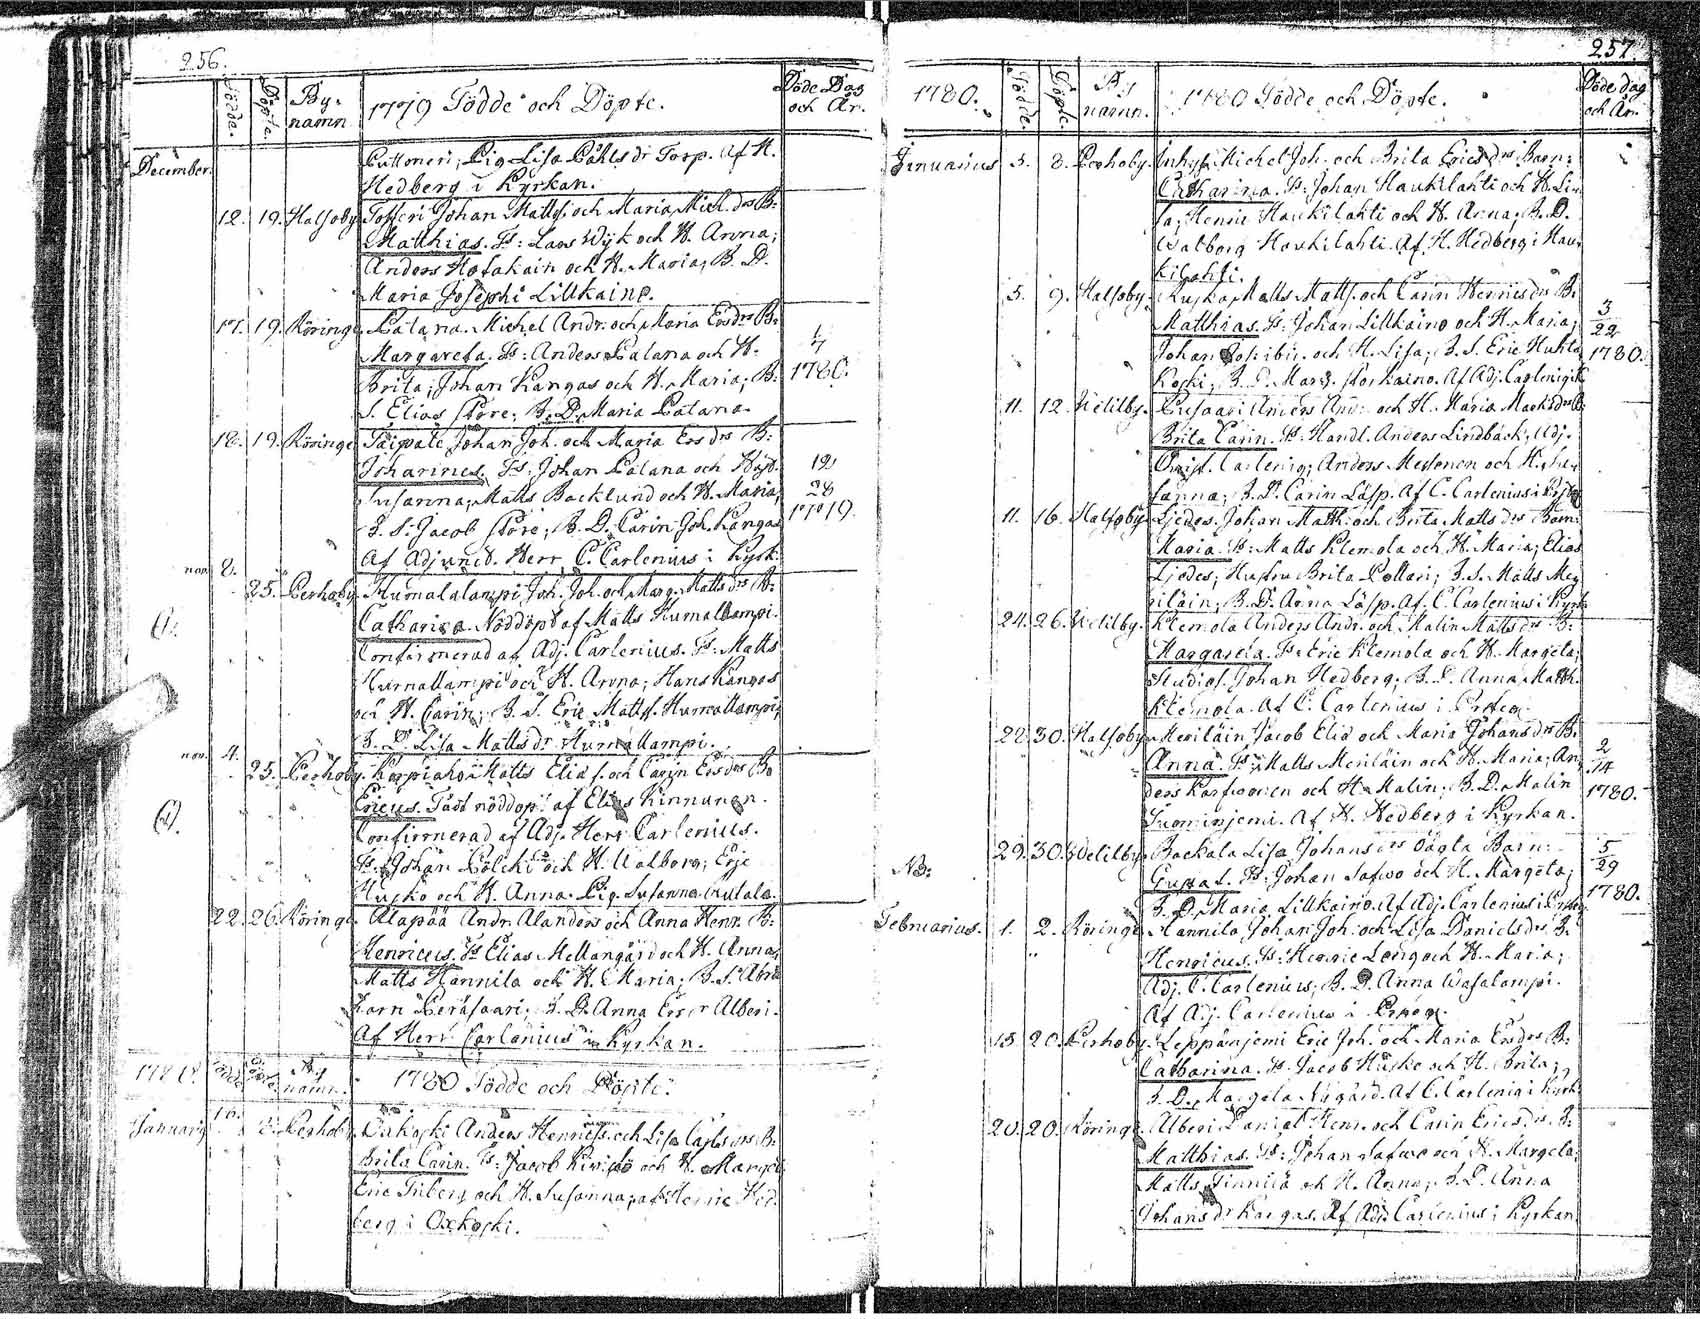 256.
Födde.
Döpte.
By-
namn
1779 Födde och Döpte.
Döde Dag
och År.
December.
Piga Lisa Påhlsdr Torp. Af H.
Hedberg i Kyrkan.
12. 19. Halsoby Tofferi Johan Mattss. och Maria Mich. drs B:
Matthias. Fs: Lars Wijk och H. Anna;
Anders Hofakain och H. Maria; B. D.
Maria Josephi Lillkaino.
17. 19. Köringe Patana Michel Andr. och Maria Ersdrs B:
Margareta. Fs: Anders Patana och H.
Brita; Johan Kangas och H. Maria; B:
S. Elias Store; B. D. Maria Patana.
1780.
18. 19. Köringe Taipale Johan Joh. och Maria Ersdrs B:
Johannes. Fs: Johan Patana och Hust.
Susanna; Matts Backlund och H. Maria;
B. S. Jacob Store; B. D. Carin Joh. Kangas
Af Adjunct. Herr C. Carlenius i Kyrk:
12
28
1779.
nov. 8. 25. Perhoby Humalalampi Joh. Joh. och Marg. Mattsdrs B:
Catharina. Nöddöpt af Matts Humallampi.
Confirmerad af Adj. Carlenius. Fs: Matts
Humallampi och H. Anna; Hans Kangas
och H. Carin; B. S. Eric Mattss. Humallampi;
B. D. Lisa Mattsdr Humallampi.
nov. 4. 25. Perhoby. Korpiaho Matts Elias s. och Carin Ersdrs B:
Ericus. Fadt nöddöpt af Elias Kinnunen.
Confirmerad af Adj. Herr Carlenius.
Fs: Johan Pölcki och H. Walborg; Eric
Husko och H. Anna. Pig. Susanna
22. 26. Köringe Alapää Andr. Alanders och Anna Henr. B:
Henricus. Fs Elias Mellangård och H. Anna;
Matts Hannila och H. Maria; B. S. Abra
ham Peräsaari; B. D. Anna Ersdr Alberi.
Af Herr Carlenius i Kyrkan.
By
namn.
1780 Födde och Döpte.
Januarij Perhoby. Oxkoski Anders Henricss. och Lisa Carlsdrs B:
Brita Carin. Fs: Jacob Kiviso och H. Marget.
Eric Friberg och H. Susanna; af Henric Hed-
berg i Oxkoski.
257.
1780.
Födde.
Döpte.
By
namn.
1780 Födde och Döpte.
Döde dag
och År.
Januarius 5. 8. Perhoby. Michel Joh. och Brita Ericsdrs Barn:
Catharina. Fs: Johan Haukilahti och H. Li-
sa; Henric Haukilahti och H. Anna; B. D.
Walborg Haukilahti. Af H. Hedberg i Hau-
kilahti.
5. 9. Halsoby. Matts Mattss. och Carin Henricsdrs B:
Matthias. Fs: Johan Lillkaino och H. Maria;
Johan och H. Lisa; B. S. Eric Huhta
Koski; B. D. Marg. Af Adj. Carlenius i K
3
22
1780.
11. 12. Wetilby. Pulsaari Anders And: och H. Maria Marksdrs B:
Brita Carin. Fs: Handl. Anders Lindback; Adj.
Christ. Carlenius; Anders Mestonen och H. Su-
sanna; B. D. Carin Läsp. Af C. Carlenius i
11. 16. Halsoby Ljedes Johan Matth: och Brita Mattsdrs Barn:
Maria. Fs: Matts Klemola och H. Maria; Elias
Ljedes; Hustru Brita Pollari; B. S. Matts Me-
riläin; B. D. Anna Läsp. Af. C. Carlenius i Kyrk
24. 26. Wetilby. Klemola Anders Andr. och Malin Mattsdrs B:
Margareta. Fs: Eric Klemola och H. Margeta;
Studios. Johan Hedberg; B. D. Anna Matth.
Klemola. Af C. Carlenius i
22. 30. Halsoby Meriläin Jacob Elis och Maria Johansdrs B:
Anna. Fs: Matts Meriläin och H. Maria; An-
ders och H. Malin; B. D. Malin
Suominjemi. Af H. Hedberg i Kyrkan.
2
14
1780.
Nb:
29. 30. Wetilby Backala Lisa Johansdrs Oägta Barn:
Gustaf. Fs: Johan Safwo och H. Margeta;
B. D. Maria Lillkaino. Af Adj. Carlenius i
5
29
1780.
Februarius. 1. 2. Köringe Hannila Johan Joh: och Lisa Danielsdrs B.
Henricus. Fs: Henric Leng och H. Maria;
Adj. C. Carlenius; B. D. Anna Wasalampi.
Af Adj. Carlenius i
13 20. Perhoby. Leppänjemi Eric Joh. och Maria Ersdrs B:
Catharina. Fs: Jacob Husko och H. Brita;
B. D. Margeta Nygård. Af C. Carlenius i Kyrk:
20. 20. Köringe Alberi Daniel Henr. och Carin Ericsdrs. B:
Matthias. Fs: Johan Safwo och H. Margeta;
Matts Finnilä och H. Anna; B. D. Anna
Johansdr Kangas. Af Adj. Carlenius i Kyrkan.